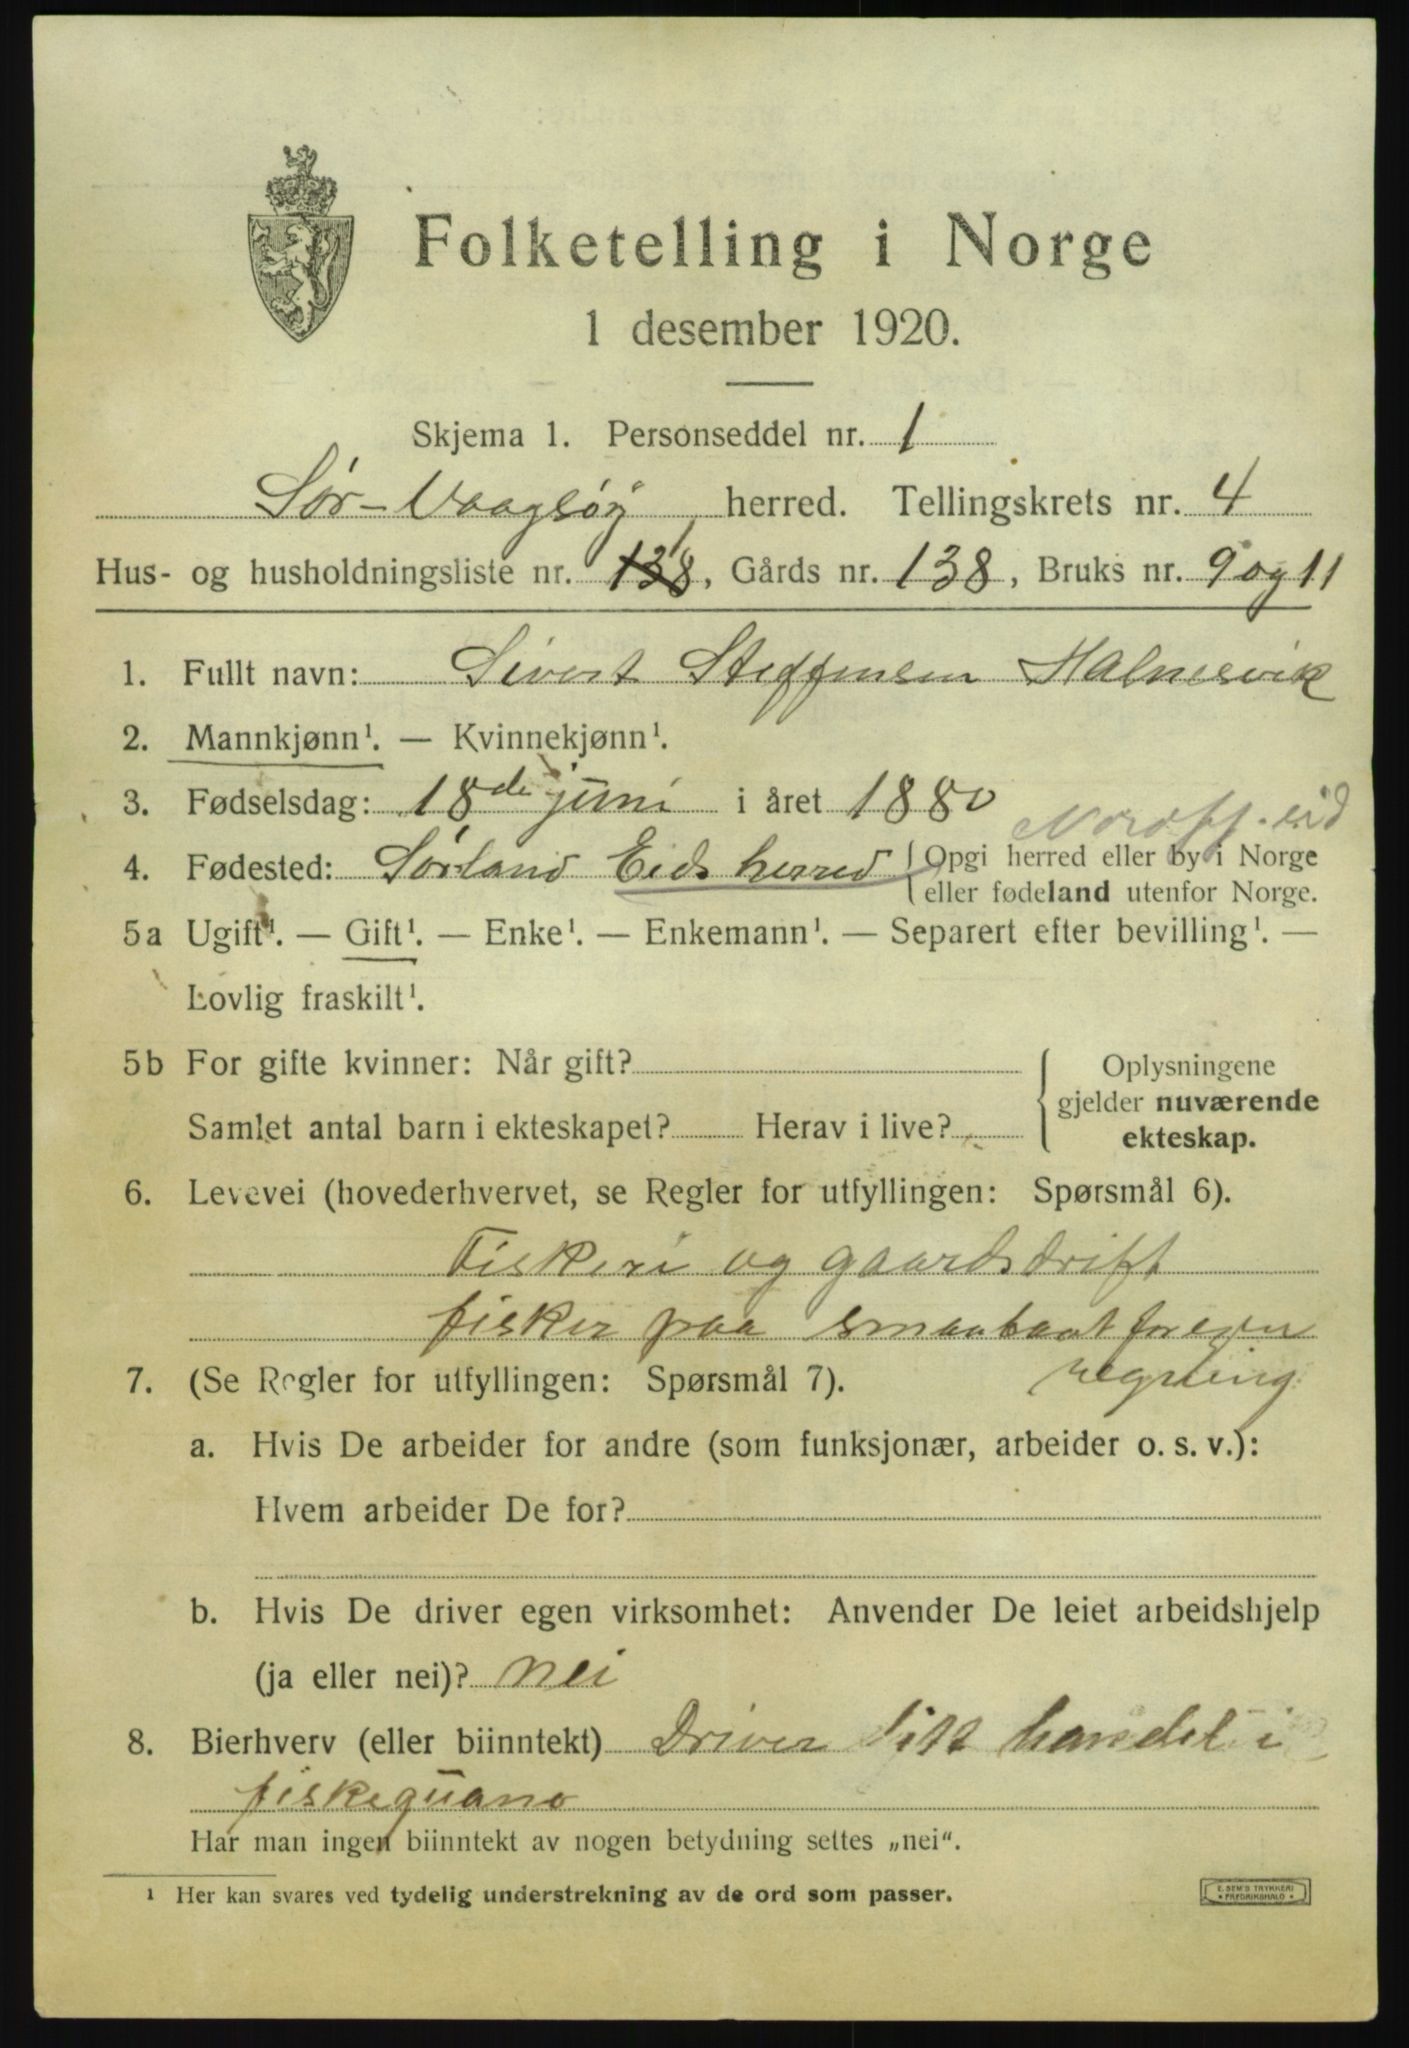 Folketelling i Norge
1 desember 1920.
Skjema 1. Personseddel nr. 1
Sør-Vaagsøy herred. Tellingskrets nr. 4
Hus- og husholdningsliste nr. 138 1, Gårds nr. 138, Bruks nr. 9 og 11
1. Fullt navn: Sivert Steffensen Halnesvik
2. Mannkjønn¹. — Kvinnekjønn¹.
3. Fødselsdag: 18de juni i året 1880
Nordfj. eid
4. Fødested: Sørland Eids herred { Opgi herred eller by i Norge
eller fødeland utenfor Norge.
5a Ugift¹. — Gift¹. — Enke¹. — Enkemann¹. — Separert efter bevilling¹. —
Lovlig fraskilt¹.
5b For gifte kvinner: Når gift?
Samlet antal barn i ekteskapet? Herav i live?
Oplysningene
gjelder nuværende
ekteskap.
6. Levevei (hovederhvervet, se Regler for utfyllingen: Spørsmål 6).
Fiskeri og gaardsdrift
fisker paa smaabaat for egen
regning
7. (Se Regler for utfyllingen: Spørsmål 7).
a. Hvis De arbeider for andre (som funksjonær, arbeider o. s. v.):
Hvem arbeider De for?
b. Hvis De driver egen virksomhet: Anvender De leiet arbeidshjelp
(ja eller nei)? nei
8. Bierhverv (eller biinntekt) Driver litt handel i
fiskeguano
Har man ingen biinntekt av nogen betydning settes „nei“.
¹ Her kan svares ved tydelig understrekning av de ord som passer.
E. SEM'S TRYKKERI
FREDRIKSHALD